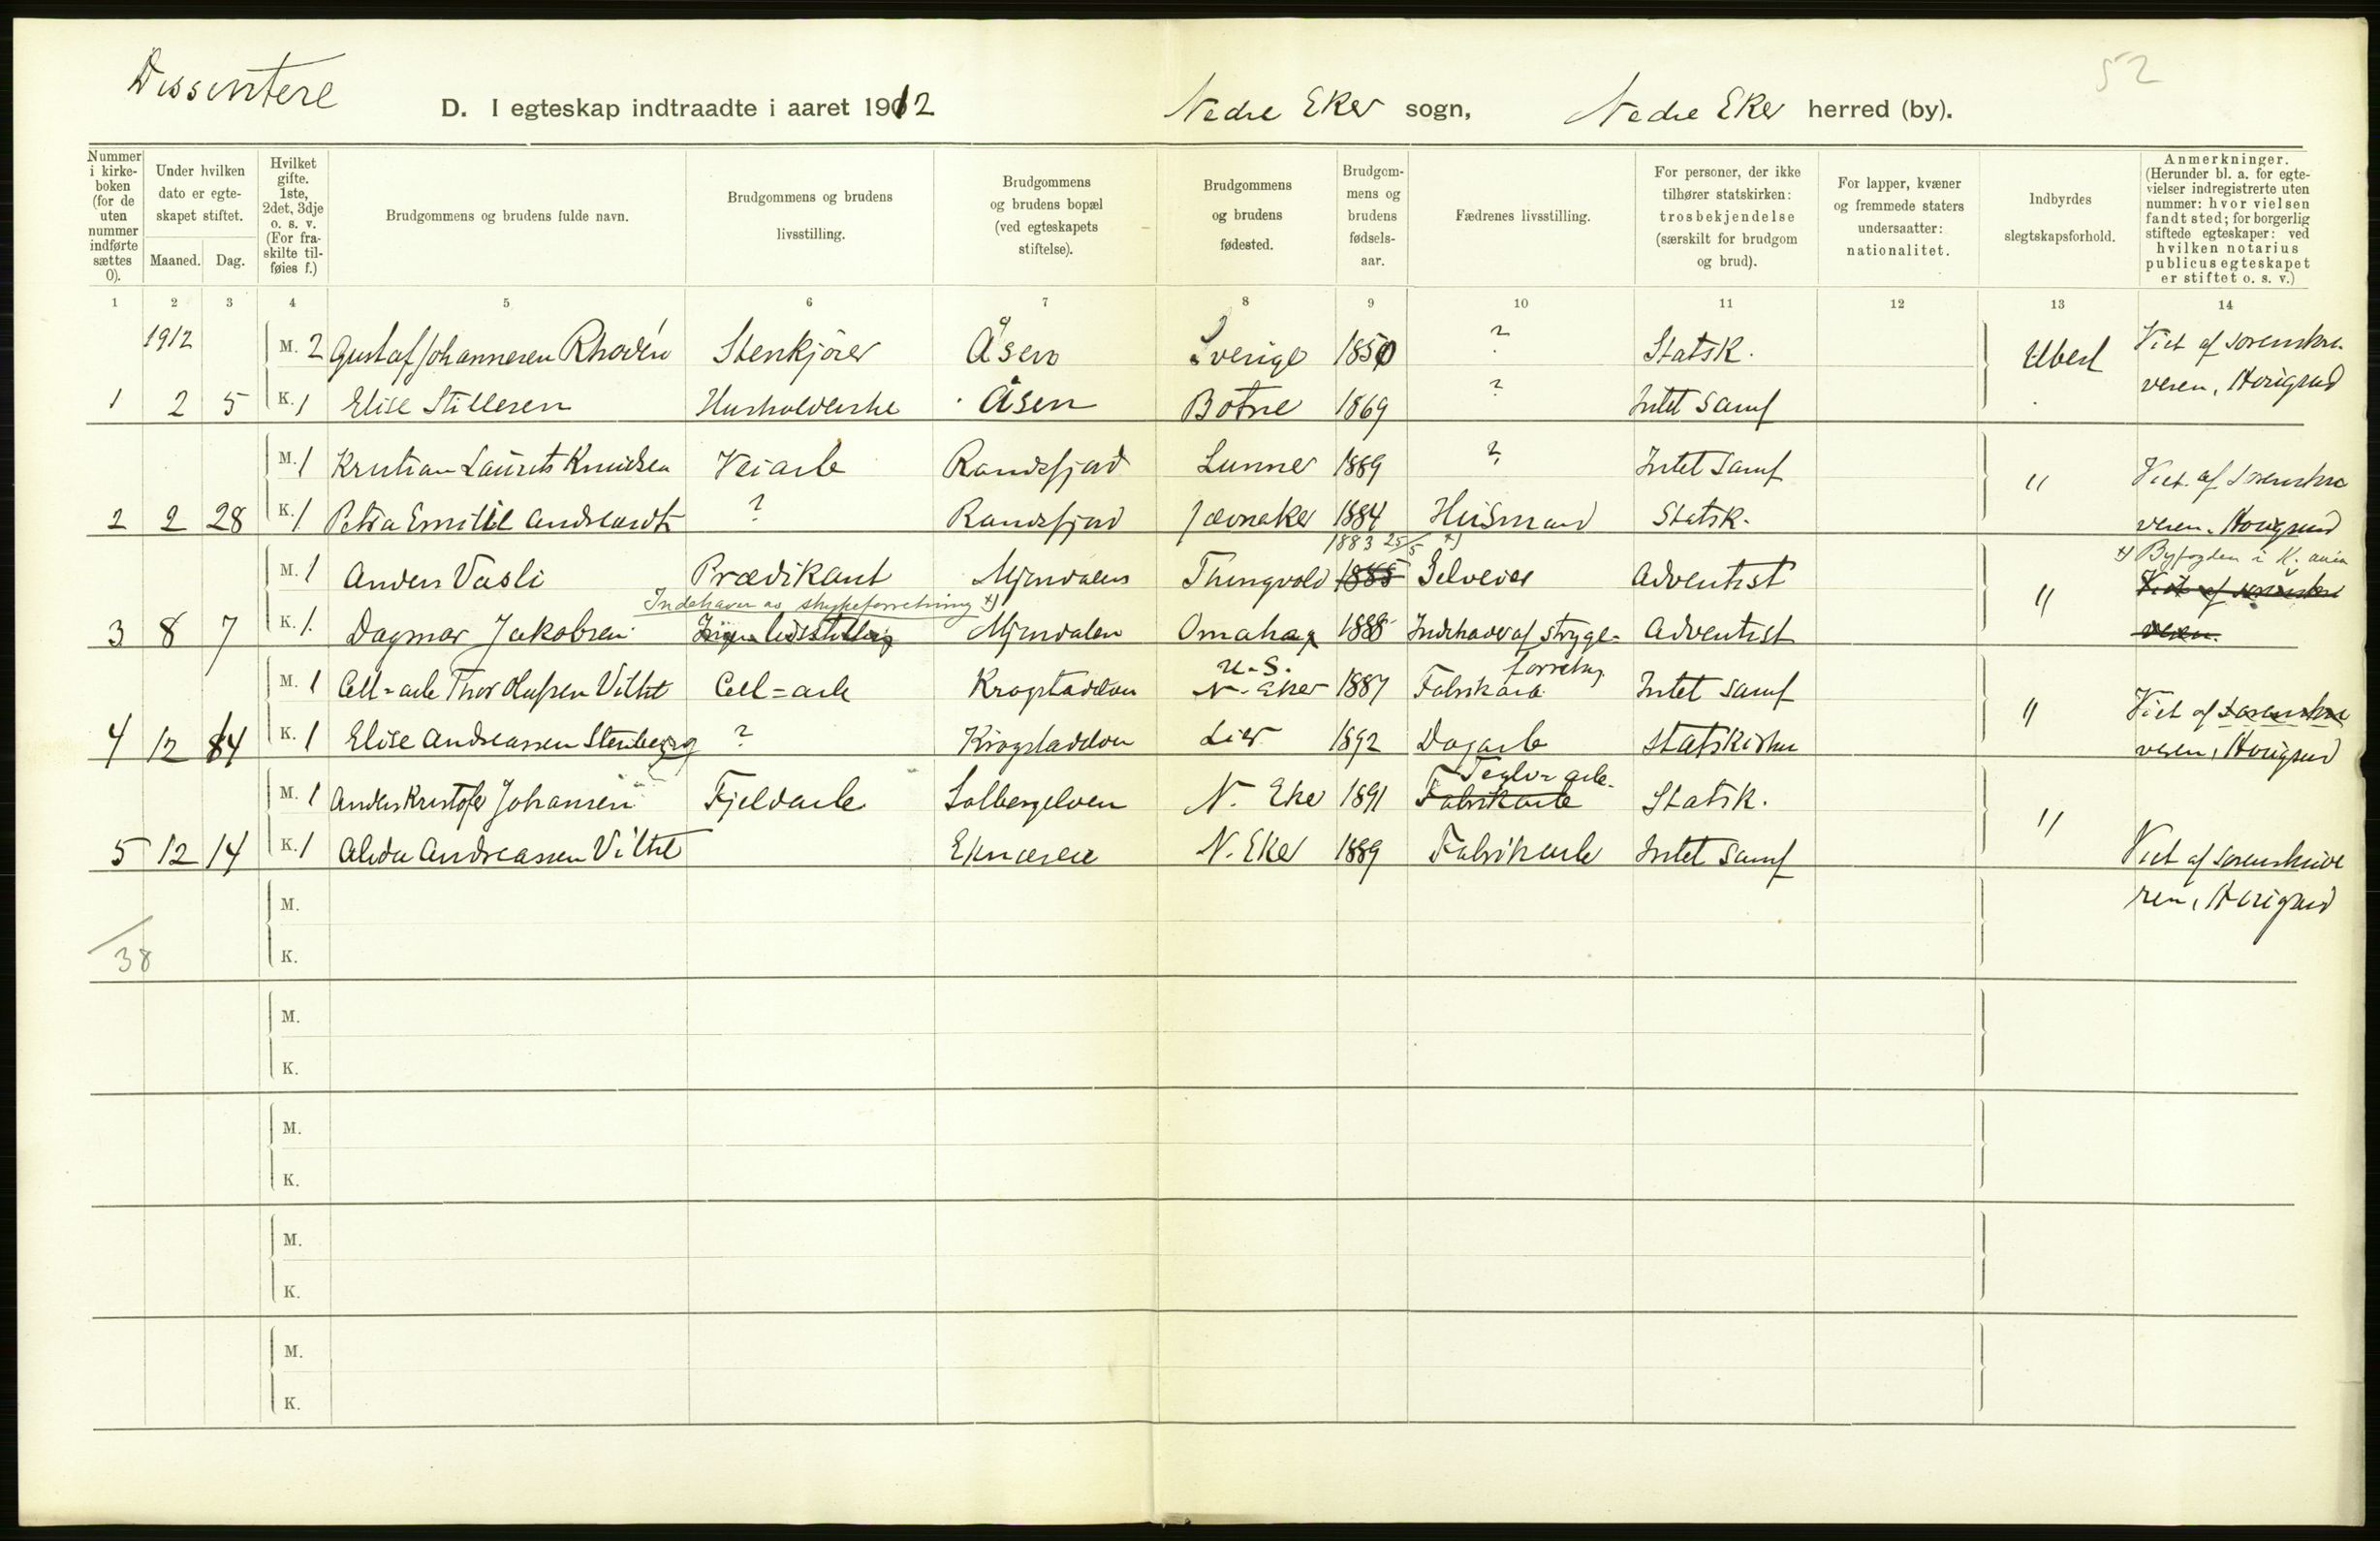 Dissentere
52
D. I egteskap indtraadte i aaret 1912 Nedre Eker sogn, Nedre Eker herred (by).
Nummer i kirke-boken (for de uten nummer indførte sættes 0).
Under hvilken dato er egte-skapet stiftet.
Maaned. Dag.
Hvilket gifte. 1ste, 2det, 3dje o. s. v. (For fra-skilte til-føies f.)
Brudgommens og brudens fulde navn.
Brudgommens og brudens livsstilling.
Brudgommens og brudens bopæl (ved egteskapets stiftelse).
Brudgommens og brudens fødested.
Brudgom-mens og brudens fødsels-aar.
Fædrenes livsstilling.
For personer, der ikke tilhører statskirken: trosbekjendelse (særskilt for brudgom og brud).
For lapper, kvæner og fremmede staters undersaatter: nationalitet.
Indbyrdes slegtskapsforhold.
Anmerkninger. (Herunder bl. a. for egte-vielser indregistrerte uten nummer: hvor vielsen fandt sted; for borgerlig stiftede egteskaper: ved hvilken notarius publicus egteskapet er stiftet o. s. v.)
1 2 3 4 5 6 7 8 9 10 11 12 13 14
1912 M. 2 Gustaf Johannesen Rhodén Stenkjörer Åsen Sverige 1850 ? Statsk. Ubesl Viet af sorenskri
1 2 5 K. 1 Elise Stillesen Husholderske Åsen Botne 1869 ? Intet Samf veren, Horigsrud
M. 1 Kristian Laurits Knudsen Veiarb Randsfjord Lunner 1889 ? Intet Samf " Viet af sorenskri
2 2 28 K. 1 Petra Emilie ? Randsfjord Jevnaker 1884 Husmand Statsk. veren, Horigsrud
1883 25/5 x) x) Byfogden i K.ania
M. 1 Anders Vasli Prædikant Mjøndalen Thingvold 1885 Selveier Adventist " Viet af sorenskri
Indehaver av strykeforretning x)
3 8 7 K. 1. Dagmar Jakobsen Ingen livsstilling Mjøndalen Omaha 1888 Indehaver af stryge- Adventist veren.
U.S. forretng.
M. 1 Cell=arb Thor Olufsen Vilht Cell=arb Krogstadelven N. Eker 1887 Fabrikarb Intet Samf " Viet af sorenskri
4 12 14 K. 1 Elise Andreassen Stenberg ? Krogstadelven Lier 1892 Dagarb Statskirken veren, Horigsrud
Teglv=arb.
M. 1 Anders Kristofer Johansen Fjeldarb Solbergelven N. Eker 1891 Fabrikarb Statsk. "
5 12 14 K. 1 Alida Andreassen Vilht N. Eker 1889 Fabrikarb Intet Samf Viet af sorenskrive
M. ren, Horigsrud
38 K.
M.
K.
M.
K.
M.
K.
M.
K.